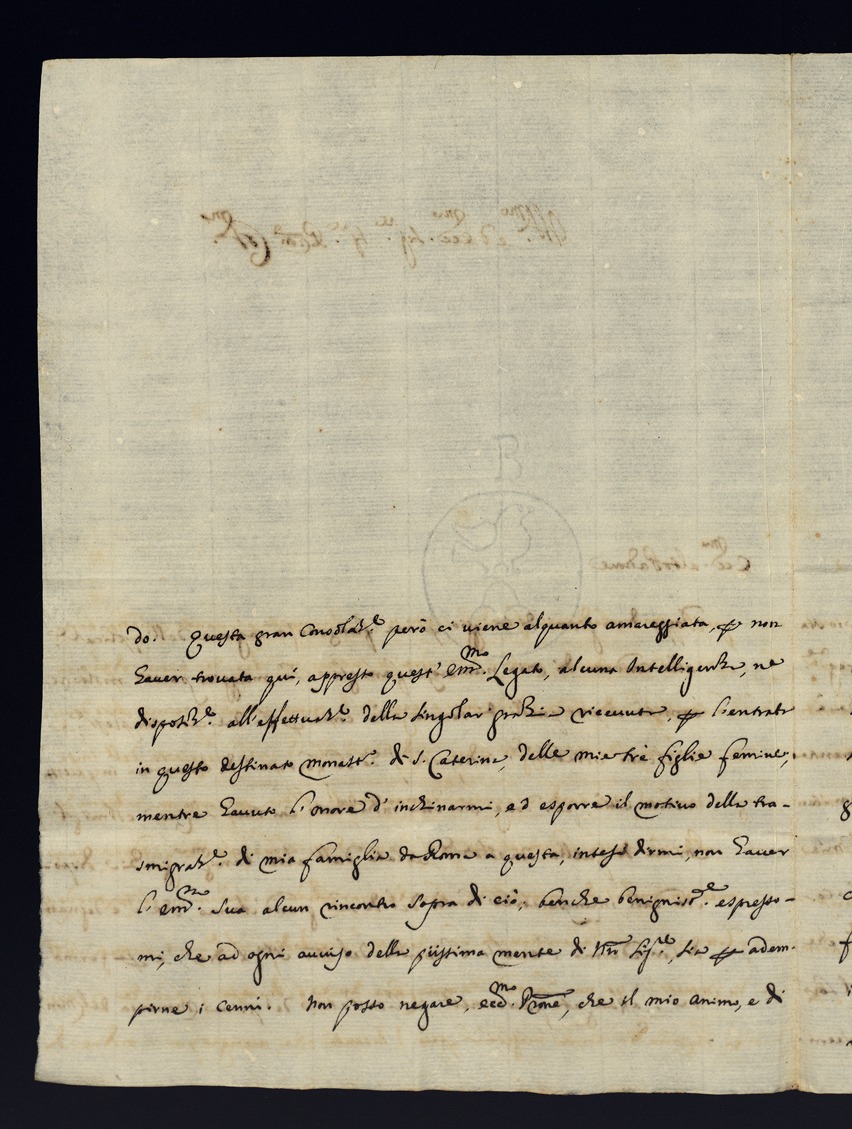 do. Questa gran Consolaz.e però ci viene alquanto amareggiata, p non
haver trovata quì, appresso quest' Em.mo Legato, alcuna Intelligenza, ne
disposiz.e all'effettuaz.e della singolar grazia ricevuta, p l'entrata
in questo destinato monast.o di S. Caterina, delle mie trè figlie femine,
mentre havuto l'onore d'inchinarmi, ed esporre il motivo della tra-
smigraz.e di mia famiglia da Roma a questa, intesi dirmi, non haver
l'Em.mo Sua alcun rincontro sopra di ciò; benche benignis.te espresso-
mi, che ad ogni avviso della piissima mente di Nro Sig.re, sia p adem-
pirne i Cenni. Non posso negare, ecc.mo Prone, che il mio animo, e di